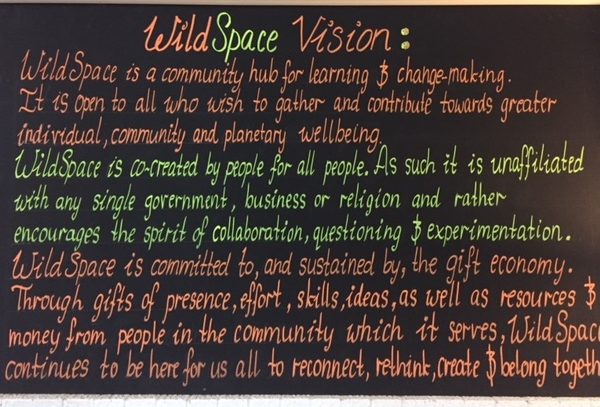 WildSpace Vision:
WildSpace is a community hub for learning & change-making.
It is open to all who wish to gather and contribute towards greater
individual, community and planetary wellbeing.
WildSpace is co-created by people for all people. As such it is unaffiliated
with any single government, business or religion and rather
encourages the spirit of collaboration, questioning & experimentation.
WildSpace is committed to, and sustained by, the gift economy.
Through gifts of presence, effort, skills, ideas, as well as resources &
money from people in the community which it serves, WildSpac
continues to be here for us all to reconnect, rethink, create & belong togeth